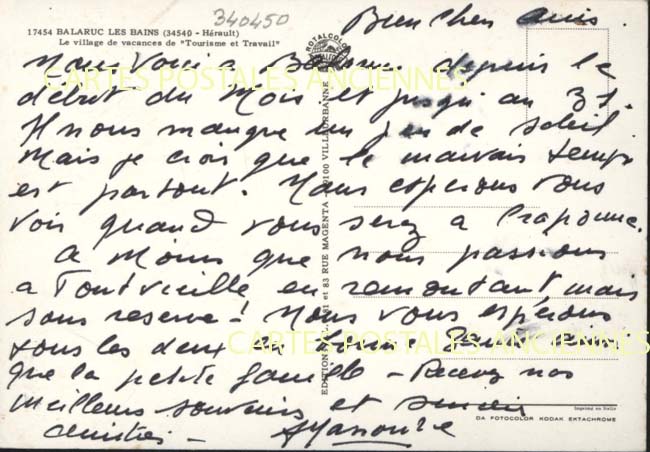 340450
17454 BALARUC LES BAINS (34540 - Hérault)
Le village de vacances de "Tourisme et Travail"
Bien Cher Amis.
Nous voici a Balaruc depuis le
début du Mois et jusqu'au 31.
Il nous manque un peu de soleil
Mais je crois que le mauvais temps
est partout. Nous esperons vous
voir quand vous serez a Craponne.
a Moins que nous passions
a Fontvieille en remontant mais
sans reserve! Nous vous espérons
tous les deux en bonne Santé ainsi
que la petite famille - Recevez nos
meilleurs souvenirs et sincères
Amitiés -
CARTES POSTALES ANCIENNES
CARTES POSTALES ANCIENNES
ROTALCOLOR
81 et 83 RUE MAGENTA 69100 VILLEURBANNE
Imprimé en Italie
DA FOTOCOLOR KODAK EKTACHROME